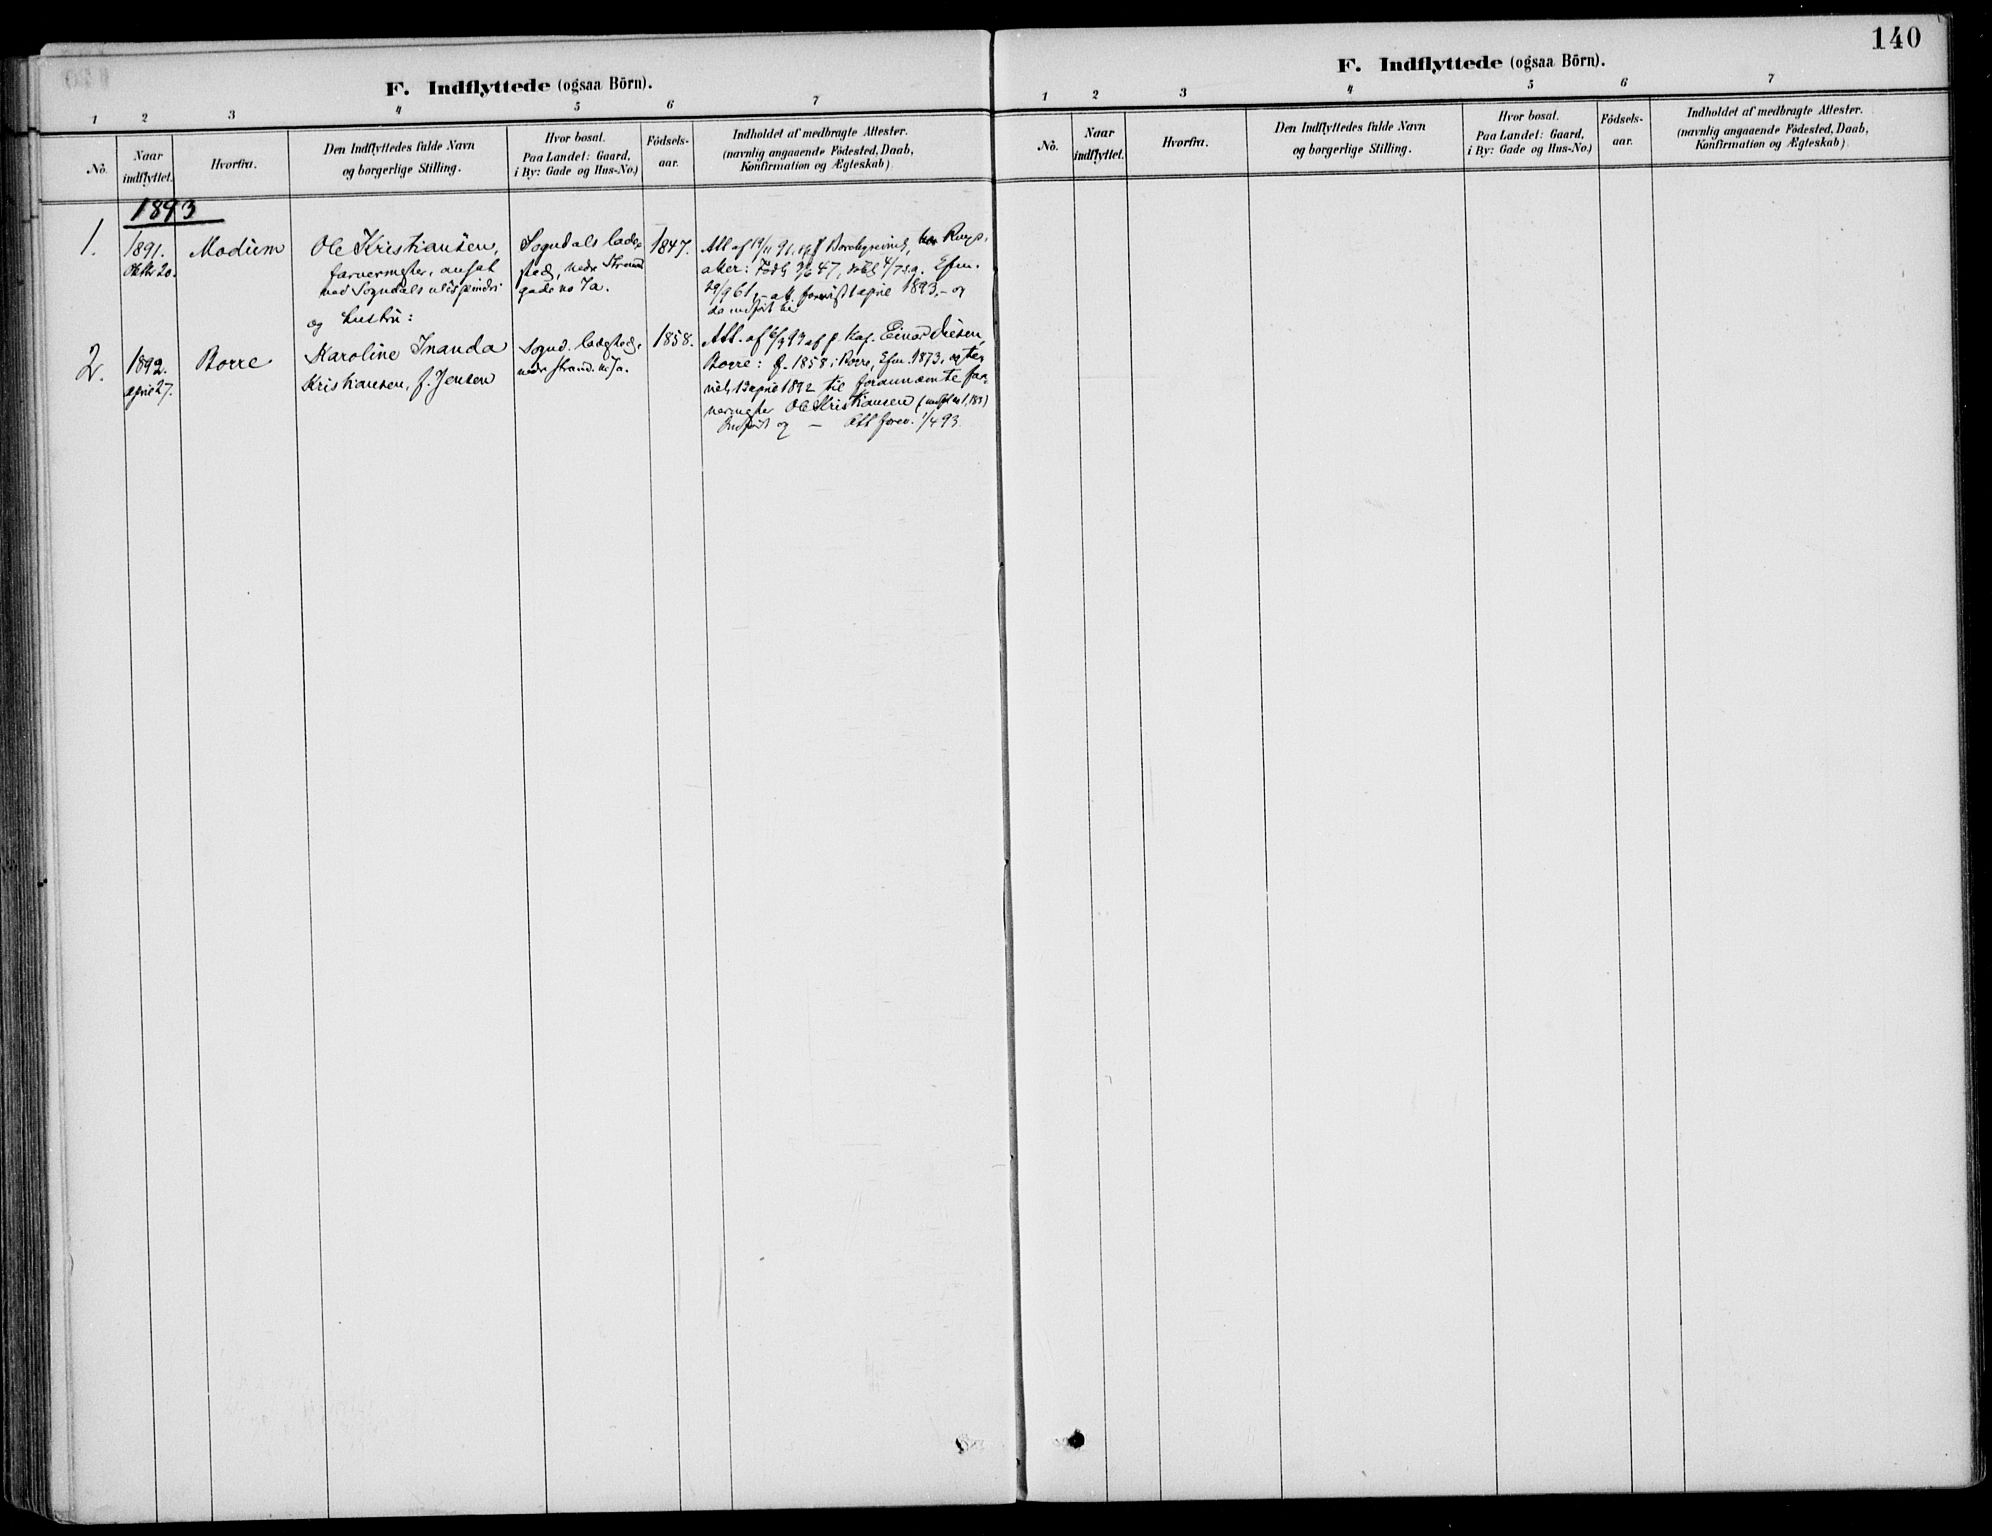 F. Indflyttede (ogsaa Börn).
1 2 3 4 5 6 7
No.
Naar
indflyttet.
Hvorfra.
Den Indflyttedes fulde Navn
og borgerlige Stilling.
Hvor bosat.
Paa Landet: Gaard,
i By: Gade og Hus-No.)
Födsels-
aar.
Indholdet af medbragte Attester.
(navnlig angaaende Födested, Daab,
Konfirmation og Ægteskab)
1893
1.
1891.
Oktbr 20.
Modum
Ole Kristiansen,
farvermester, ansat
ved Sogndals uldspinderi
og hustru:
Sogndals lade-
sted, nedre Strand
gade no 7a.
1847.
Att af 19/11 91
aker: Född 47, döbt 4/7 s.a. Cfm.
29/9 61, - att. forevist 1 april 1893, - og
da indfört her
2.
1892.
april 27.
Borre
Karoline Inanda
Kristiansen, f. Jensen
Sognd. ladested,
nedr strand. no 7a.
1858.
Att. af 93 af p. Kap. Einar Diesen,
Borre: f. 1858 i Borre, Cfm. 1873, og
viet 12 april 1892 til forannævnte far-
vermester Ole Kristiansen
Indfört og — att forev. 1/4 93.
140
F. Indflyttede (ogsaa Börn).
1 2 3 4 5 6 7
No.
Naar
indflyttet.
Hvorfra.
Den Indflyttedes fulde Navn
og borgerlige Stilling.
Hvor bosat.
Paa Landet: Gaard,
i By: Gade og Hus-No.)
Födsels-
aar.
Indholdet af medbragte Attester.
(navnlig angaaende Födested, Daab,
Konfirmation og Ægteskab)